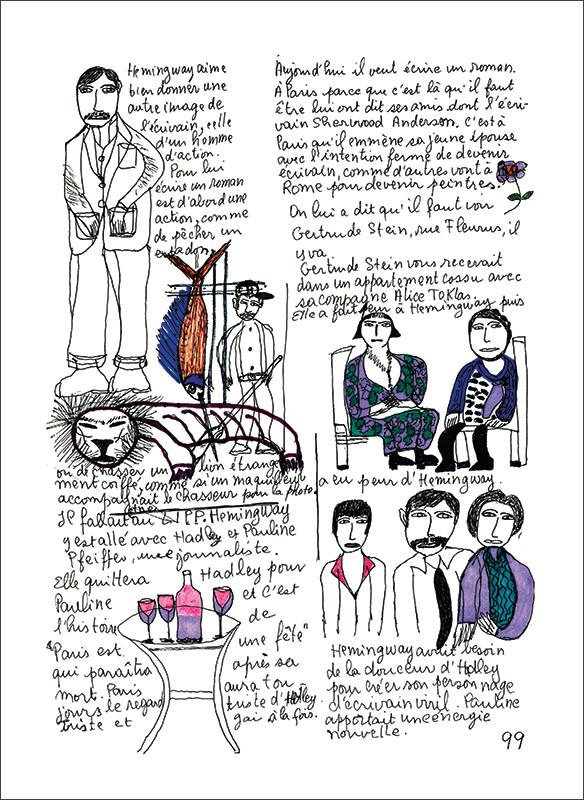 Hemingway aime
bien donner une
autre image de
l'écrivain, celle
d'un homme
d'action.
Pour lui
écrire un roman
est d'abord une
action, comme
de pêcher un
espadon
ou de chasser un lion étrange
ment coiffé, comme si un maquilleur
accompagnait le chasseur pour la photo.
Il fallait au P.P. Hemingway
y est allé avec Hadley et Pauline
Pfeiffer, une journaliste.
Elle quittera Hadley pour
Pauline et c'est
l'histoire de
"Paris est une fête"
qui paraîtra après sa
mort. Paris aura tou
jours le regard triste d'Hadley
triste et gai à la fois.
Aujourd'hui il veut écrire un roman.
À Paris parce que c'est là qu'il faut
être lui ont dit ses amis dont l'écri-
vain Sherwood Anderson. C'est à
Paris qu'il emmène sa jeune épouse
avec l'intention ferme de devenir
écrivain, comme d'autres vont à
Rome pour devenir peintres.
On lui a dit qu'il faut voir
Gertrude Stein, rue Fleurus, il
y va.
Gertrude Stein vous recevait
dans un appartement cossu avec
sa compagne Alice Toklas.
Elle a fait peur à Hemingway puis
a eu peur d'Hemingway.
Hemingway avait besoin
de la douceur d'Hadley
pour créer son personnage
d'écrivain viril. Pauline
apportait une énergie
nouvelle.
99